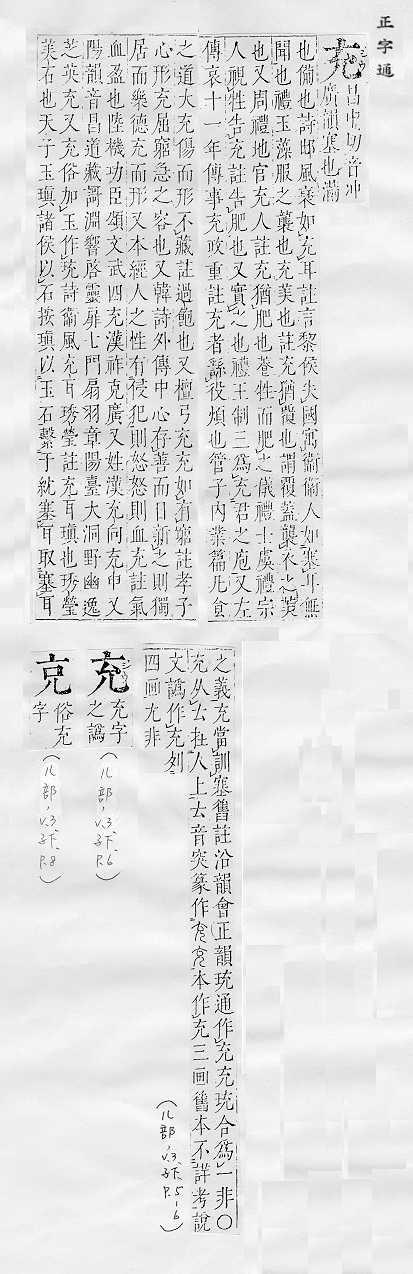 正字通
充
昌中切音冲
廣韻塞也滿
也備也詩邶風褎如充耳註言黎侯失國寓衞衞人如塞耳無
聞也禮玉藻服之襲也充美也註充猶覆也謂覆蓋襲衣之美
也又周禮地官充人註充猶肥也養牲而肥之儀禮士虞禮宗
人視牲告充註告肥也又實之也禮王制三爲充君之庖又左
傳哀十一年傳事充政重註充者繇役煩也管子內業篇凡食
之道大充傷而形不藏註過飽也又檀弓充充如有窮註孝子
心形充屈窮急之容也又韓詩外傳中心存善而日新之則獨
居而樂德充而形又本經人之性有侵犯則怒怒則血充註氣
血盈也陸機功臣頌文武四充漢祚克廣又姓漢充向充申又
陽韻音昌道藏謌淵響啓靈扉七門扇羽章陽臺大洞野幽逸
芝英充又充俗加玉作珫詩衞風充耳琇瑩註充耳瑱也琇瑩
美石也天子玉瑱諸侯以石按瑱以玉石繫于紞塞耳取塞耳
之義充當訓塞舊註沿韻會正韻珫通作充充珫合爲一非○
充从𠫓在人上𠫓音突篆作𠫓𠫓本作充三畫舊本不詳考說
文譌作充列
四畫尤非
充
充字
之譌
(儿部,v.3,子下,P.6)
㐬
俗充
字
(儿部,v.3,子下,P.8)
(儿部,v.3,子下,P.5-6)